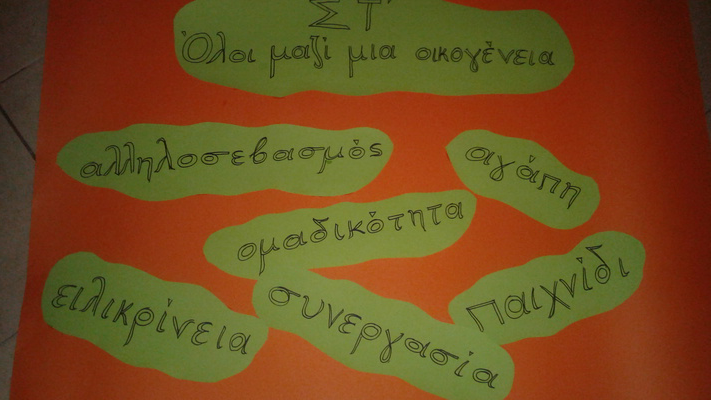 ΣΤ΄
Όλοι μαζί μια οικογένεια
αλληλοσεβασμός
αγάπη
ομαδικότητα
ειλικρίνεια
συνεργασία
παιχνίδι